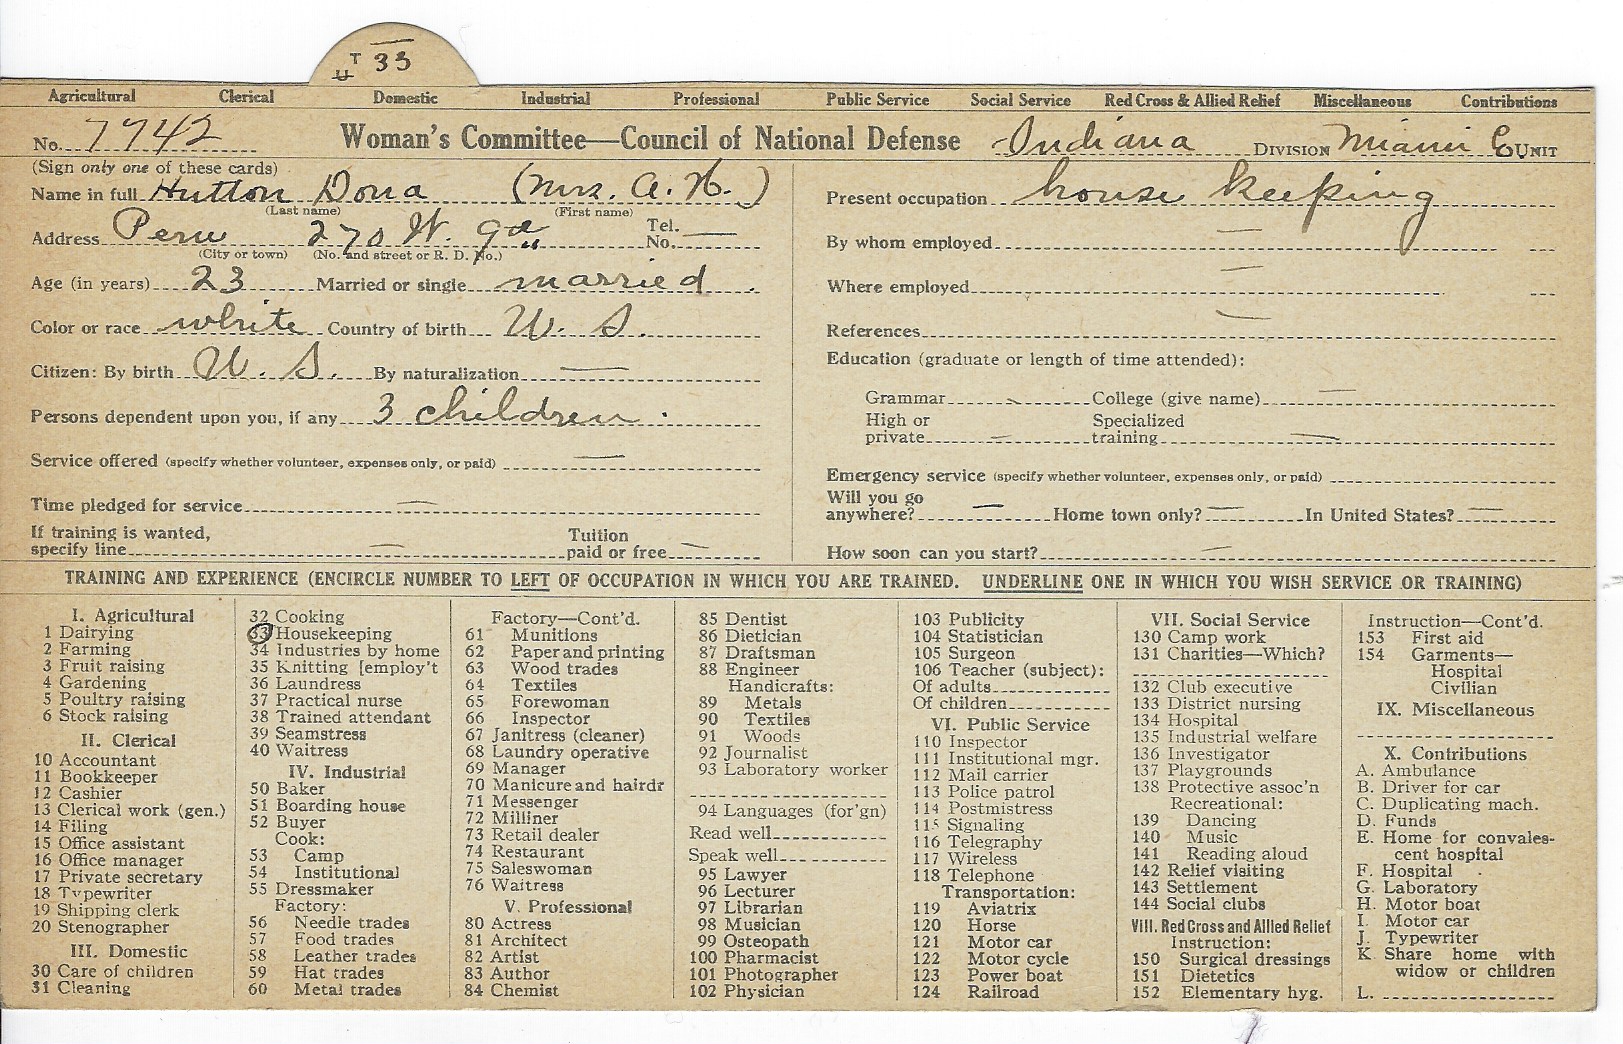 U T 33
Agricultural Clerical Domestic Industrial Professional Public Service Social Service Red Cross & Allied Relief Miscellaneous Contributions
No. 7742 Woman's Committee—Council of National Defense Indiana DIVISION Miami Co UNIT
(Sign only one of these cards)
Name in full Hutton Dona (Mrs. A. H.)
(Last name) (First name)
Address Peru 270 W. 9th Tel. No. —
(City or town) (No. and street or R. D. No.)
Age (in years) 23 Married or single married.
Color or race white Country of birth U. S.
Citizen: By birth U. S. By naturalization —
Persons dependent upon you, if any 3 children.
Service offered (specify whether volunteer, expenses only, or paid) —
Time pledged for service —
If training is wanted,
specify line — Tuition paid or free —
Present occupation house keeping
By whom employed —
Where employed —
References —
Education (graduate or length of time attended):
Grammar — College (give name) —
High or private — Specialized training —
Emergency service (specify whether volunteer, expenses only, or paid)
Will you go
anywhere? — Home town only? — In United States? —
How soon can you start? —
TRAINING AND EXPERIENCE (ENCIRCLE NUMBER TO LEFT OF OCCUPATION IN WHICH YOU ARE TRAINED. UNDERLINE ONE IN WHICH YOU WISH SERVICE OR TRAINING)
I. Agricultural
1 Dairying
2 Farming
3 Fruit raising
4 Gardening
5 Poultry raising
6 Stock raising
II. Clerical
10 Accountant
11 Bookkeeper
12 Cashier
13 Clerical work (gen.)
14 Filing
15 Office assistant
16 Office manager
17 Private secretary
18 Typewriter
19 Shipping clerk
20 Stenographer
III. Domestic
30 Care of children
31 Cleaning
32 Cooking
33 Housekeeping
34 Industries by home
35 Knitting [employ't
36 Laundress
37 Practical nurse
38 Trained attendant
39 Seamstress
40 Waitress
IV. Industrial
50 Baker
51 Boarding house
52 Buyer
Cook:
53 Camp
54 Institutional
55 Dressmaker
Factory:
56 Needle trades
57 Food trades
58 Leather trades
59 Hat trades
60 Metal trades
Factory—Cont'd.
61 Munitions
62 Paper and printing
63 Wood trades
64 Textiles
65 Forewoman
66 Inspector
67 Janitress (cleaner)
68 Laundry operative
69 Manager
70 Manicure and hairdr
71 Messenger
72 Milliner
73 Retail dealer
74 Restaurant
75 Saleswoman
76 Waitress
V. Professional
80 Actress
81 Architect
82 Artist
83 Author
84 Chemist
85 Dentist
86 Dietician
87 Draftsman
88 Engineer
Handicrafts:
89 Metals
90 Textiles
91 Woods
92 Journalist
93 Laboratory worker
94 Languages (for'gn)
Read well
Speak well
95 Lawyer
96 Lecturer
97 Librarian
98 Musician
99 Osteopath
100 Pharmacist
101 Photographer
102 Physician
103 Publicity
104 Statistician
105 Surgeon
106 Teacher (subject):
Of adults
Of children
VI. Public Service
110 Inspector
111 Institutional mgr.
112 Mail carrier
113 Police patrol
114 Postmistress
115 Signaling
116 Telegraphy
117 Wireless
118 Telephone
Transportation:
119 Aviatrix
120 Horse
121 Motor car
122 Motor cycle
123 Power boat
124 Railroad
VII. Social Service
130 Camp work
131 Charities—Which?
132 Club executive
133 District nursing
134 Hospital
135 Industrial welfare
136 Investigator
137 Playgrounds
138 Protective assoc'n
Recreational:
139 Dancing
140 Music
141 Reading aloud
142 Relief visiting
143 Settlement
144 Social clubs
VIII. Red Cross and Allied Relief
Instruction:
150 Surgical dressings
151 Dietetics
152 Elementary hyg.
Instruction—Cont'd.
153 First aid
154 Garments—
Hospital
Civilian
IX. Miscellaneous
X. Contributions
A. Ambulance
B. Driver for car
C. Duplicating mach.
D. Funds
E. Home for convales-
cent hospital
F. Hospital
G. Laboratory
H. Motor boat
I. Motor car
J. Typewriter
K. Share home with
widow or children
L.